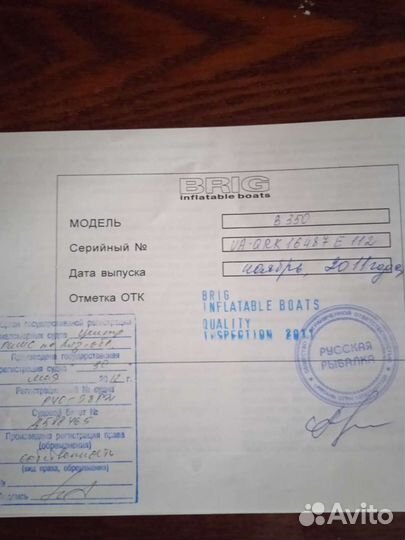 BRIG
inflatable boats
МОДЕЛЬ B 350
Серийный № UA-QRK 16487 E 112
Дата выпуска ноябрь, 2011 года
Отметка ОТК
BRIG
INFLATABLE BOATS
QUALITY
INSPECTION 2011
РУССКАЯ
РЫБАЛКА
государственной регистрации
судна Центр
Произведена государственная
регистрация судна
мая 2012 г.
Регистрационный № судна
Судовой билет №
Произведена регистрация права
(обременения)
собственность
(вид права, обременения)
Avito